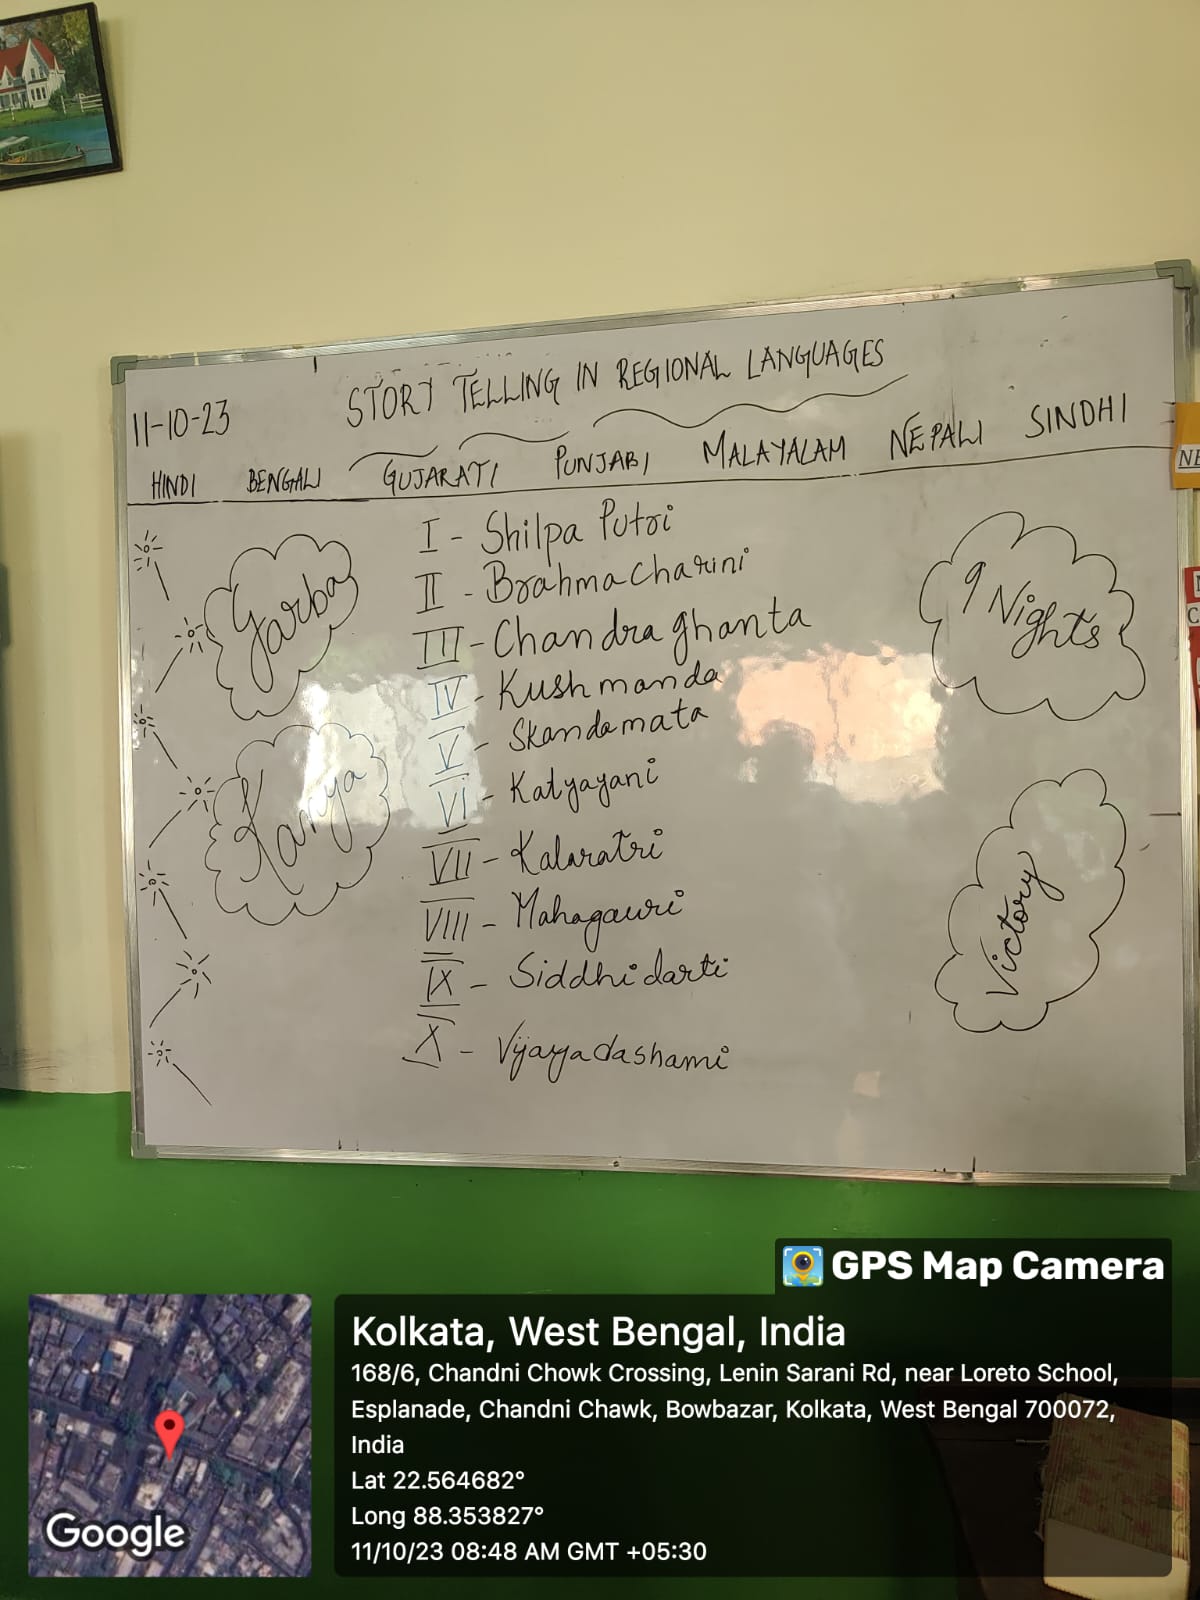 STORY TELLING IN REGIONAL LANGUAGES
11-10-23
HINDI BENGALI GUJARATI PUNJABI MALAYALAM NEPALI SINDHI
I - Shilpa Putri
II - Brahmacharini
III - Chandraghanta
IV - Kushmanda
V - Skandamata
VI - Katyayani
VII - Kalaratri
VIII - Mahagauri
IX - Siddhidarti
X - Vijayadashami
Garba
Kanya
9 Nights
Victory
GPS Map Camera
Kolkata, West Bengal, India
168/6, Chandni Chowk Crossing, Lenin Sarani Rd, near Loreto School,
Esplanade, Chandni Chawk, Bowbazar, Kolkata, West Bengal 700072,
India
Lat 22.564682°
Long 88.353827°
11/10/23 08:48 AM GMT +05:30
Google